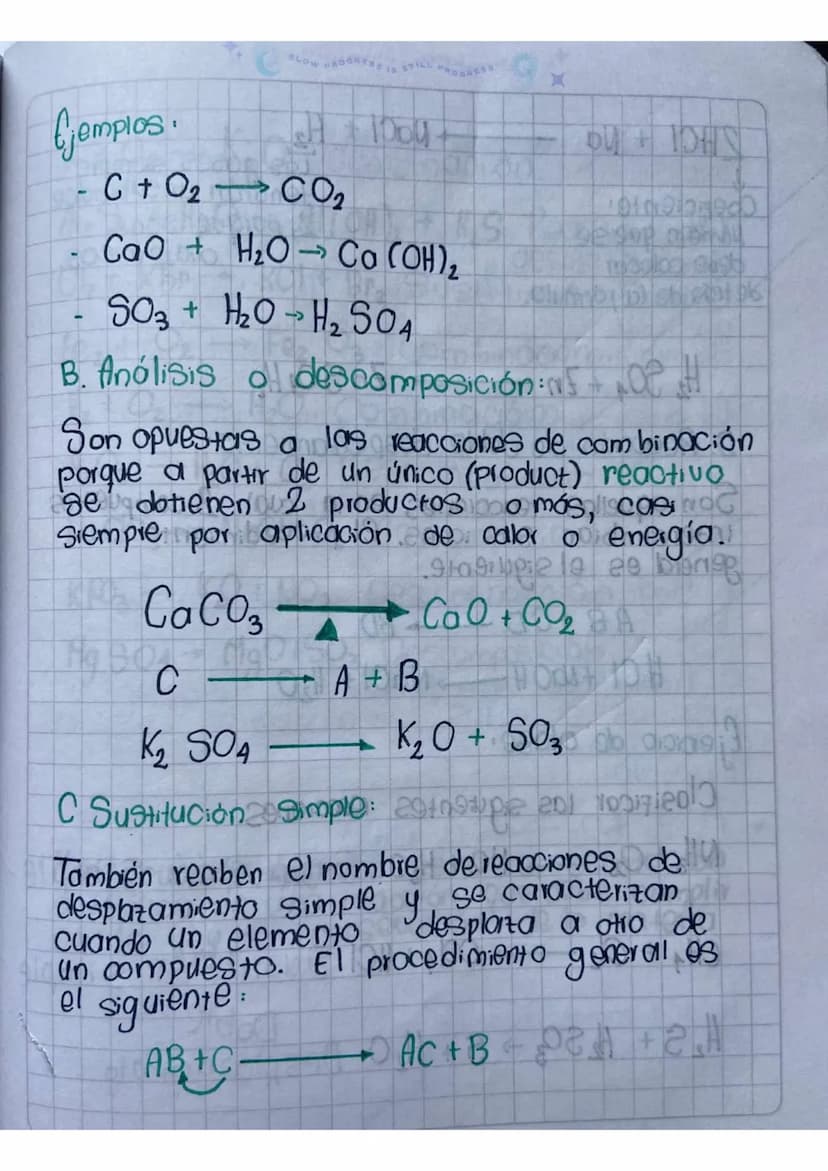 SLOW PROGRESS IS STILL PROGRESS
Ejemplos:
- C + O₂ → CO₂
- CaO + H₂O → Ca(OH)₂
- SO₃ + H₂O → H₂SO₄
B. Análisis o descomposición:
Son opuestas a las reacciones de combinación
porque a partir de un único (product) reactivo
se obtienen 2 productos o más, casi
siempre por aplicación de calor o energía.
CaCO₃ → CaO + CO₂
▲
C → A + B
K₂SO₄ → K₂O + SO₃
C Sustitución simple:
También reciben el nombre de reacciones de
desplazamiento simple y se caracterizan
cuando un elemento desplaza a otro de
un compuesto. El procedimiento general es
el siguiente:
AB + C → AC + B